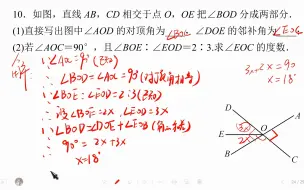 10. 如图，直线 AB，CD 相交于点 O，OE 把∠BOD 分成两部分．
(1)直接写出图中∠AOD 的对顶角为∠BOC ∠DOE 的邻补角为∠EOC
(2)若∠AOC=90°，且∠BOE：∠EOD=2：3．求∠EOC 的度数．
解：∵∠AOC=90°(已知)
∴∠BOD=∠AOC=90°(对顶角相等)
∵∠BOE：∠EOD=2:3(已知)
∴设∠BOE=2x ∠EOD=3x
∵∠BOD=∠DOE+∠EOB
90°=2x+3x
x=18°
3x+2x=90
x=18°
D
A
3x
E
2x
O
B
C